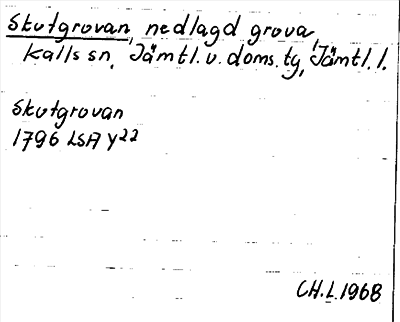 Skutgrovan, nedlagd grova
Kalls sn, Jämtl. v. doms. tg, Jämtl. l.
Skutgrovan
1796 LSA Y22
CH.L.1968